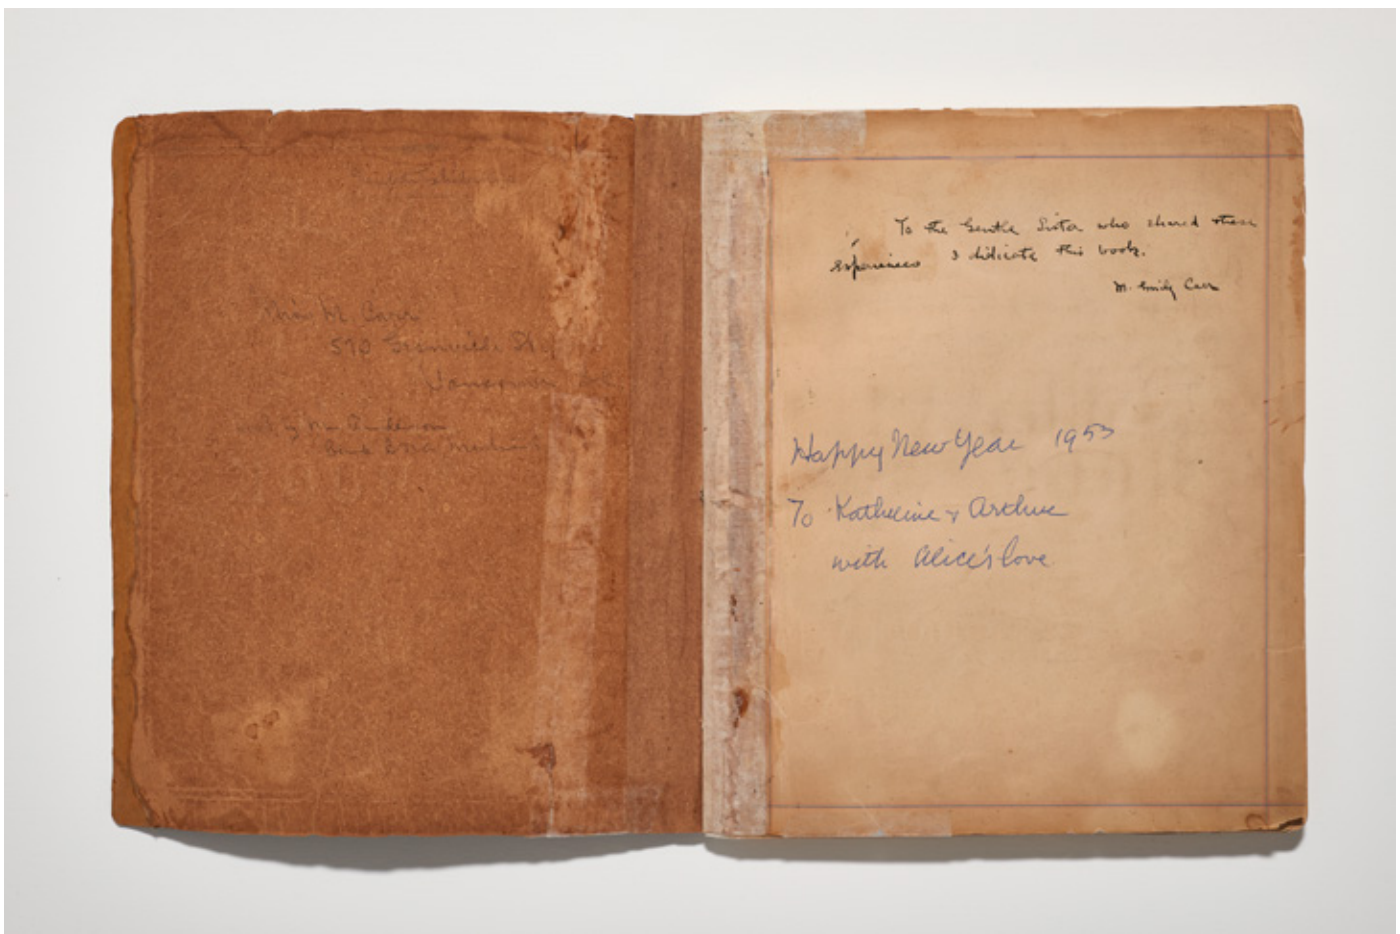 Miss M Carr
570 Granville St
Vancouver B.C.
To the Gentle Sister who shared these
experiences I didicate this book.
M. Emily Carr
Happy New Year 1953
To Katherine & Arthur
with Alice's love